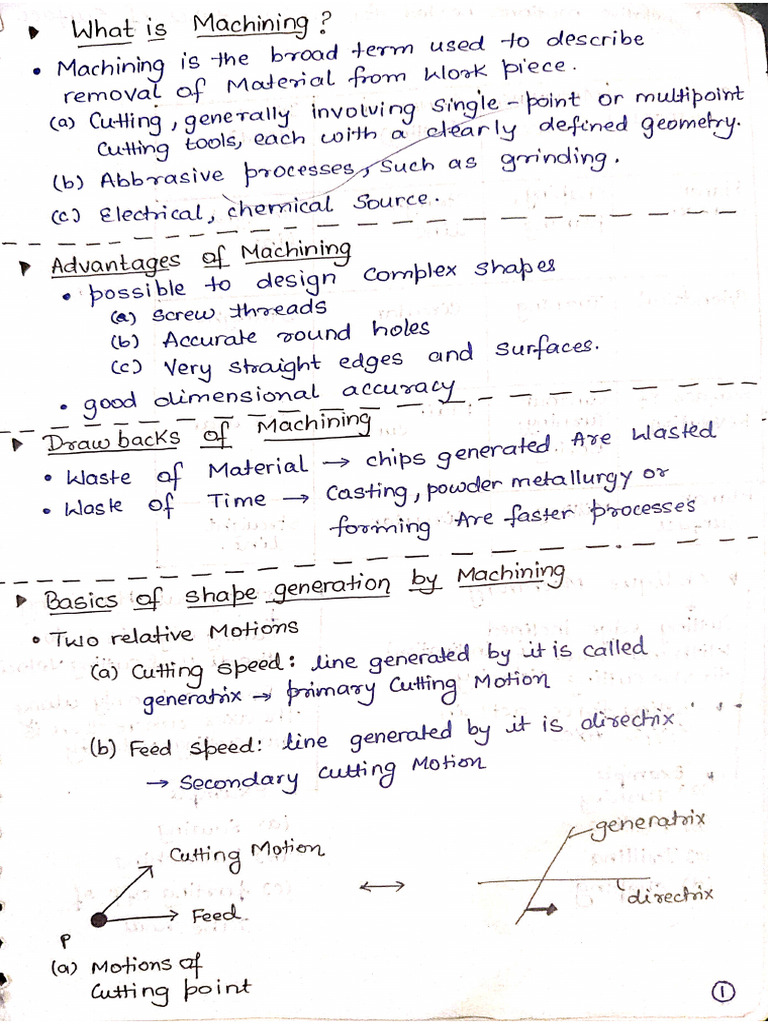 ▸ What is Machining?
• Machining is the broad term used to describe
removal of Material from Work piece.
(a) Cutting, generally involving single-point or multipoint
Cutting tools, each with a clearly defined geometry.
(b) Abbrasive processes, such as grinding.
(c) Electrical, chemical Source.
▸ Advantages of Machining
• possible to design complex shapes
(a) Screw threads
(b) Accurate round holes
(c) Very straight edges and surfaces.
• good dimensional accuracy
▸ Drawbacks of Machining
• Waste of Material → chips generated Are Wasted
• Waste of Time → Casting, powder metallurgy or
forming Are faster processes
▸ Basics of shape generation by Machining
• Two relative Motions
(a) Cutting speed: line generated by it is called
generatrix → primary Cutting Motion
(b) Feed speed: line generated by it is directrix
→ Secondary Cutting Motion
generatrix
Cutting Motion
directrix
Feed
P
(a) Motions of
Cutting point
1